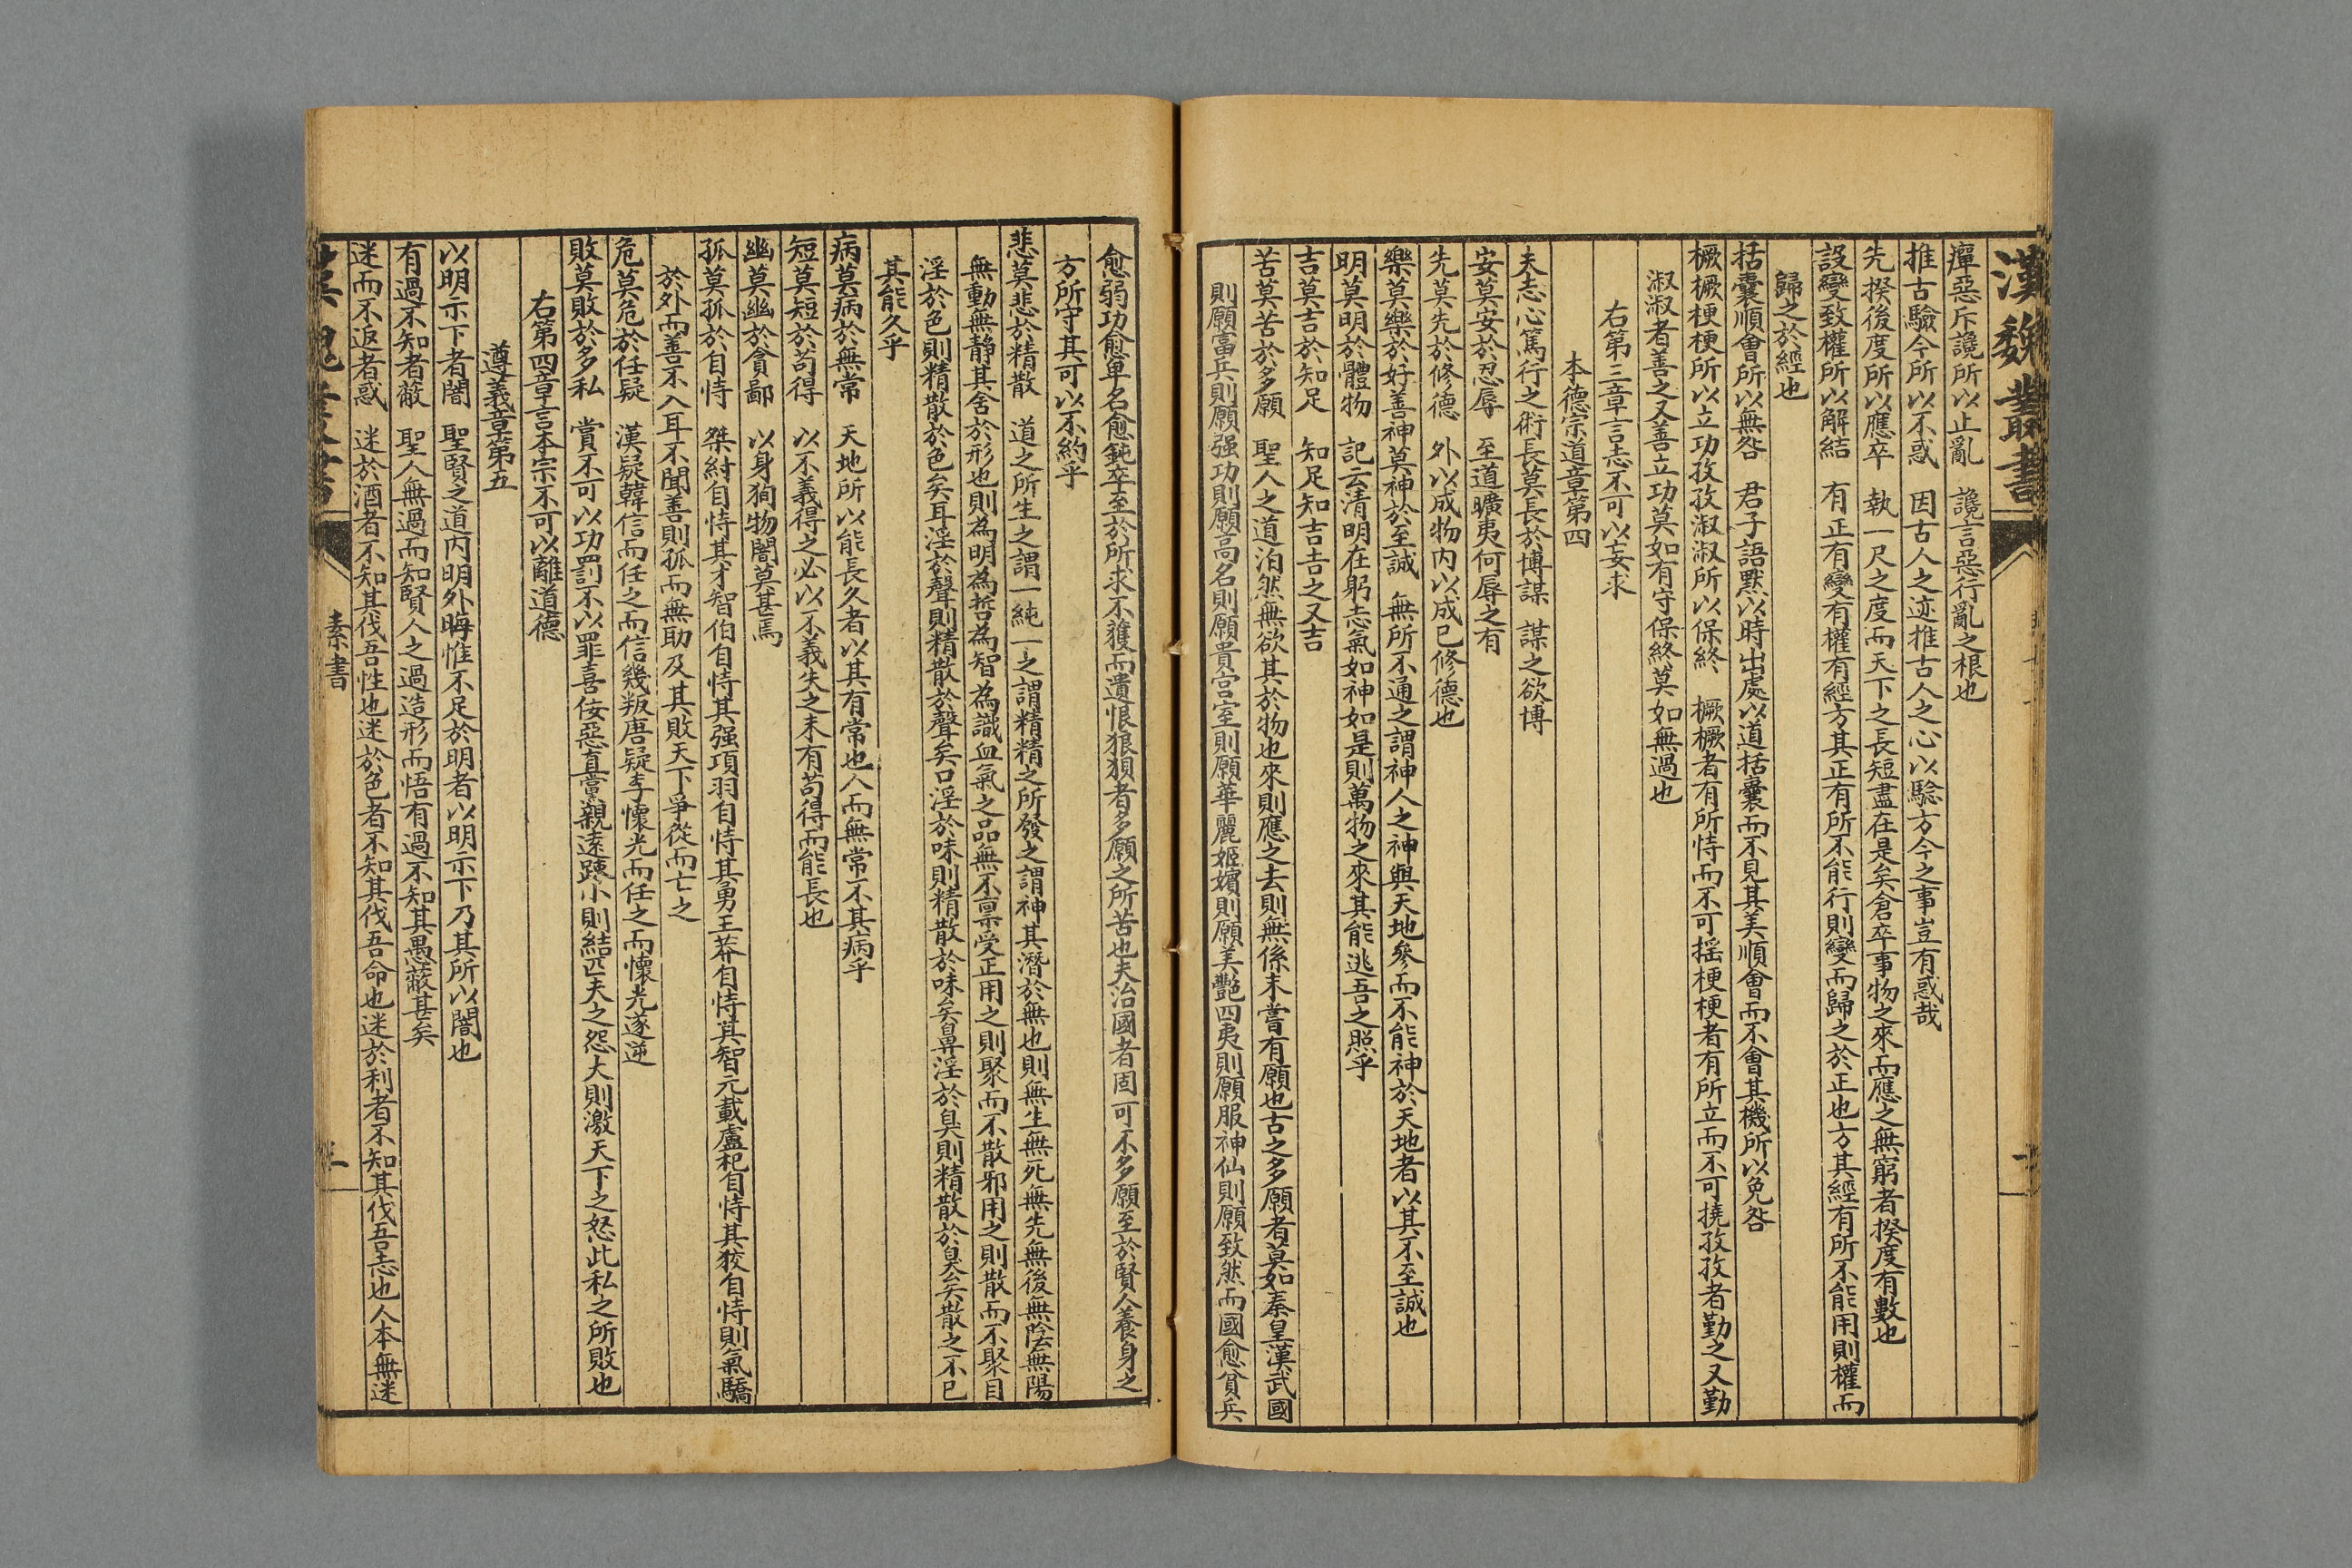 漢魏叢書
癉惡斥讒所以止亂　讒言惡行亂之根也
推古驗今所以不惑　因古人之迹推古人之心以驗方今之事豈有惑哉
先揆後度所以應卒　執一尺之度而天下之長短盡在是矣倉卒事物之來而應之無窮者揆度有數也
設變致權所以解結　有正有變有權有經方其正有所不能行則變而歸之於正也方其經有所不能用則權而
歸之於經也
括囊順會所以無咎　君子語默以時出處以道括囊而不見其美順會而不會其機所以免咎
橛橛梗梗所以立功孜孜淑淑所以保終　橛橛者有所恃而不可摇梗梗者有所立而不可撓孜孜者勤之又勤
淑淑者善之又善立功莫如有守保終莫如無過也
右第三章言志不可以妄求
本德宗道章第四
夫志心篤行之術長莫長於博謀　謀之欲博
安莫安於忍辱　至道曠夷何辱之有
先莫先於修德　外以成物内以成己修德也
樂莫樂於好善神莫神於至誠　無所不通之謂神人之神與天地參而不能神於天地者以其不至誠也
明莫明於體物　記云清明在躬志氣如神如是則萬物之來其能逃吾之照乎
吉莫吉於知足　知足知吉吉之又吉
苦莫苦於多願　聖人之道泊然無欲其於物也來則應之去則無係未嘗有願也古之多願者莫如秦皇漢武國
則願富兵則願强功則願高名則願貴宫室則願華麗姬嬪則願美艷四夷則願服神仙則願致然而國愈貧兵
愈弱功愈卑名愈鈍卒至於所求不獲而遺恨狼狽者多願之所苦也夫治國者固可不多願至於賢人養身之
方所守其可以不約乎
悲莫悲於精散　道之所生之謂一純一之謂精精之所發之謂神其潛於無也則無生無死無先無後無陰無陽
無動無静其舍於形也則為明為哲為智為識血氣之品無不禀受正用之則聚而不散邪用之則散而不聚目
淫於色則精散於色矣耳淫於聲則精散於聲矣口淫於味則精散於味矣鼻淫於臭則精散於臭矣散之不已
其能久乎
病莫病於無常　天地所以能長久者以其有常也人而無常不其病乎
短莫短於苟得　以不義得之必以不義失之未有苟得而能長也
幽莫幽於貪鄙　以身狥物闇莫甚焉
孤莫孤於自恃　桀紂自恃其才智伯自恃其强項羽自恃其勇王莽自恃其智元載盧杞自恃其狡自恃則氣驕
於外而善不入耳不聞善則孤而無助及其敗天下爭從而亡之
危莫危於任疑　漢疑韓信而任之而信幾叛唐疑李懷光而任之而懷光遂逆
敗莫敗於多私　賞不可以功罰不以罪喜佞惡直黨親遠踈小則結匹夫之怨大則激天下之怒此私之所敗也
右第四章言本宗不可以離道德
遵義章第五
以明示下者闇　聖賢之道内明外晦惟不足於明者以明示下乃其所以闇也
有過不知者蔽　聖人無過而知賢人之過造形而悟有過不知其愚蔽甚矣
迷而不返者惑　迷於酒者不知其伐吾性也迷於色者不知其伐吾命也迷於利者不知其伐吾志也人本無迷
漢魏叢書　素書